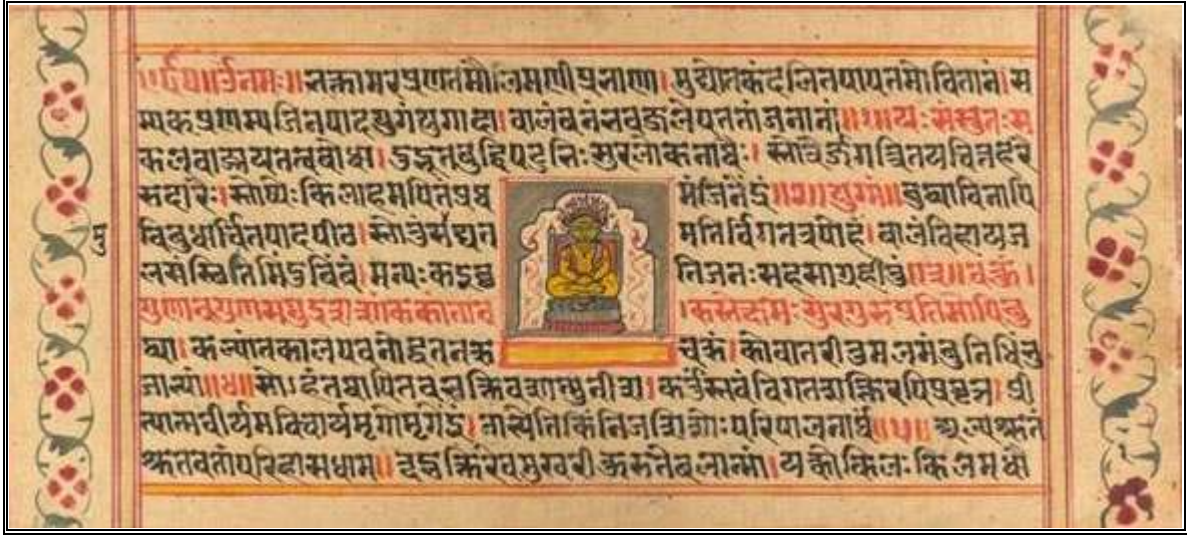 ॥ ॐ नमः॥ भक्तामरप्रणतमौलिमणीप्रभाणा। मुद्योतकंदलितपापतमोवितानं। स
म्यक्प्रणम्यजिनपादयुगंयुगादा। वालंबनंभवजलेपततांजनानां॥१॥ यःसंस्तुतःस
कलवाङ्मयतत्वबोधा। दुद्भूतबुद्धिपटुभिःसुरलोकनाथैः। स्तोत्रैर्जगत्त्रितयचित्तहरै
रुदारैः। स्तोष्येकिलाहमपितंप्रथ मंजिनेंद्रं॥२॥युग्मं॥ बुद्ध्याविनापि
विबुधार्चितपादपीठ। स्तोतुंसमुद्यत मतिर्विगतत्रपोहं। बालंविहायज
लसंस्थितमिंदुबिंबं। मन्यःकइच्छ तिजनःसहसाग्रहीतुं॥३॥ वक्तुं।
गुणान्गुणसमुद्रशशांककांतान । कस्तेक्षमःसुरगुरुप्रतिमोपिबु
द्ध्या। कल्पांतकालपवनोद्धतनक्र चक्रं। कोवातरीतुमलमंबुनिधिंभु
जाभ्यां॥४॥ सोऽहंतथापितवभक्तिवशान्मुनीश। कर्तुंस्तवंविगतशक्तिरपिप्रवृत्तः। प्री
त्यात्मवीर्यमविचार्यमृगोमृगेंद्रं। नाभ्येतिकिंनिजशिशोःपरिपालनार्थं॥५॥ अल्पश्रुतं
श्रुतवतांपरिहासधाम॥ त्वद्भक्तिरेवमुखरीकुरुतेबलान्मां। यत्कोकिलःकिलमधौ